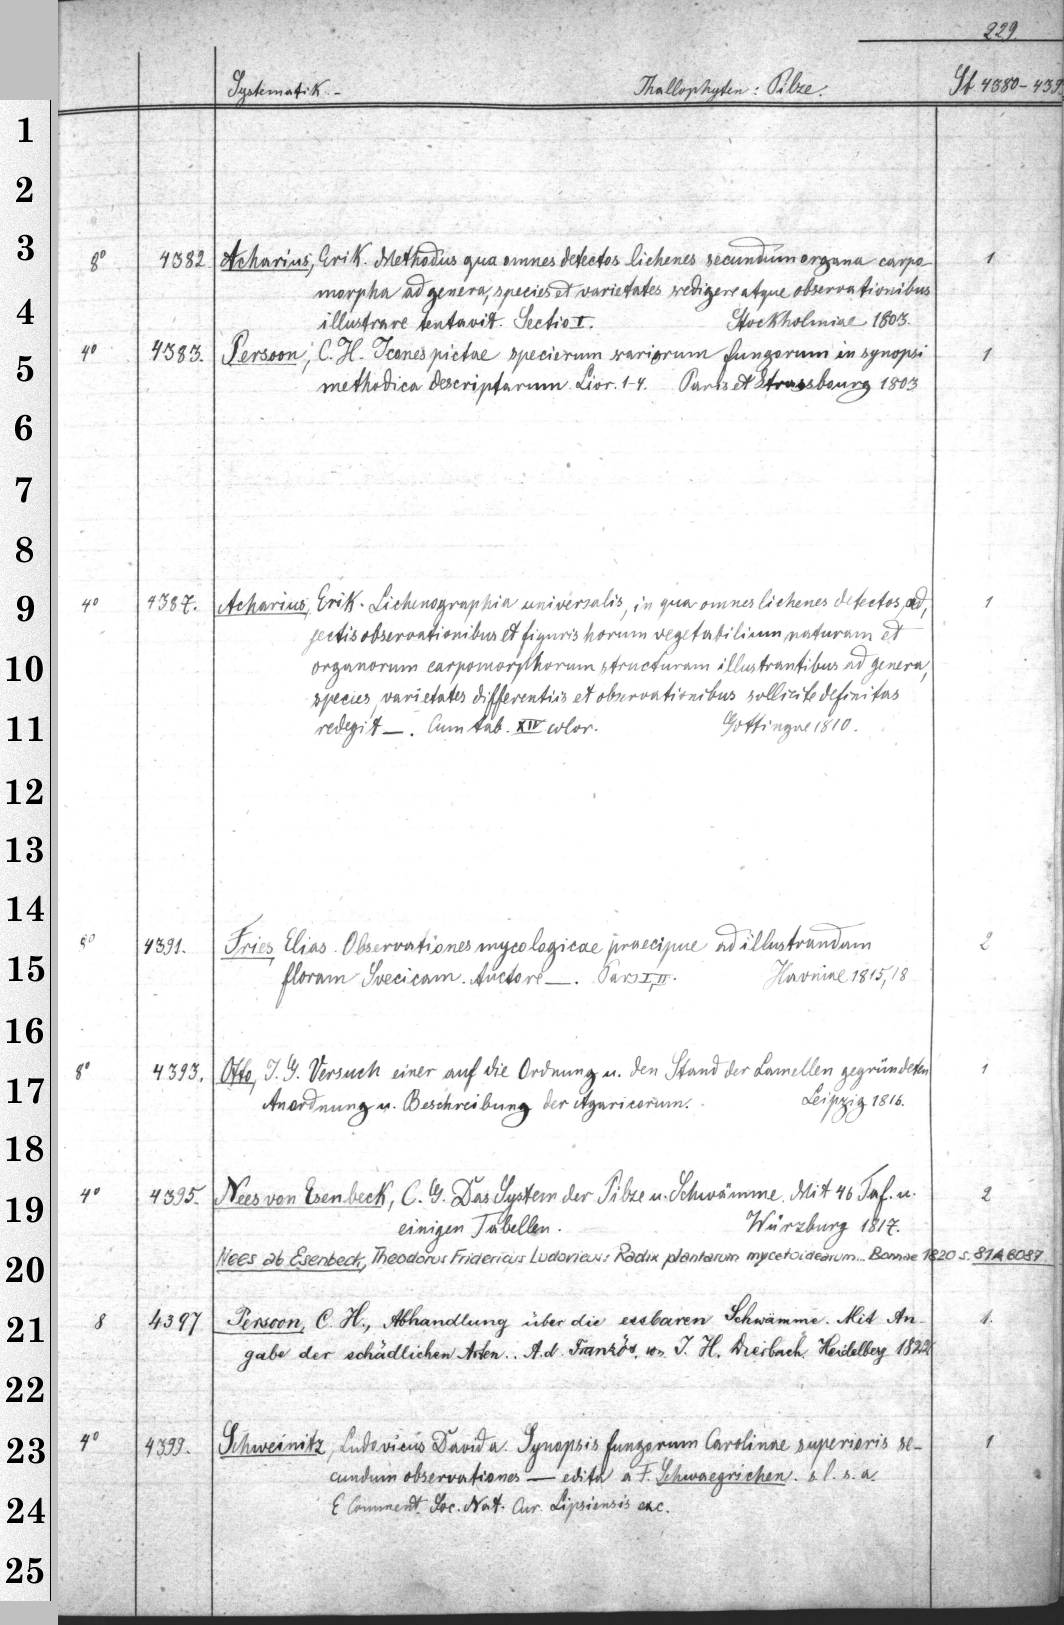 229.
Systematik.- Thallophyten: Pilze. St 4380-439
1
2
3
8° 4382 Acharius, Erik. Methodus qua omnes detectos lichenes secundum organa carpo- 1
morpha ad genera, species et varietates redigere atque observationibus
4
illustrare tentavit. Sectio I. Stockholmiae 1803.
4° 4383. Persoon, C. H. Icones pictae specierum rariorum fungorum in synopsi 1
5
methodica descriptarum. Livr. 1-4. Paris et Strassbourg 1803
6
7
8
9
4° 4387. Acharius, Erik. Lichenographia universalis, in qua omnes lichenes detectos, ad, 1
jectis observationibus et figuris horum vegetabilium naturam et
10
organorum carpomorphorum structuram illustrantibus ad genera,
species, varietates differentiis et observationibus sollicite definitas
11
redegit —. Cum tab. XIV color. Gottingae 1810.
12
13
14
8° 4391. Fries, Elias. Observationes mycologicae praecipue ad illustrandam 2
15
floram Svecicam. Auctore —. Pars I, II. Havniae 1815, 18
16
8° 4393. Otto, J. G. Versuch einer auf die Ordnung u. den Stand der Lamellen gegründeten 1
17
Anordnung u. Beschreibung der Agaricorum. Leipzig 1816.
18
4° 4395. Nees von Esenbeck, C. G. Das System der Pilze u. Schwämme. Mit 46 Taf. u. 2
19
einigen Tabellen. Würzburg 1817.
20
Nees ab Esenbeck, Theodorus Fridericus Ludovicus: Radix plantarum mycetoidearum... Bonnae 1820 s. 81 A 6087
8 4397 Persoon, C. H., Abhandlung über die essbaren Schwämme. Mit An- 1.
21
gabe der schädlichen Arten.. A. d. Französ. von J. H. Dierbach. Heidelberg 1822
22
4° 4399. Schweinitz, Ludovicus David a. Synopsis fungorum Carolinae superioris se- 1
23
cundum observationes — edita a F. Schwaegrichen. s. l. s. a.
24
E Comment. Soc. Nat. Cur. Lipsiensis exc.
25